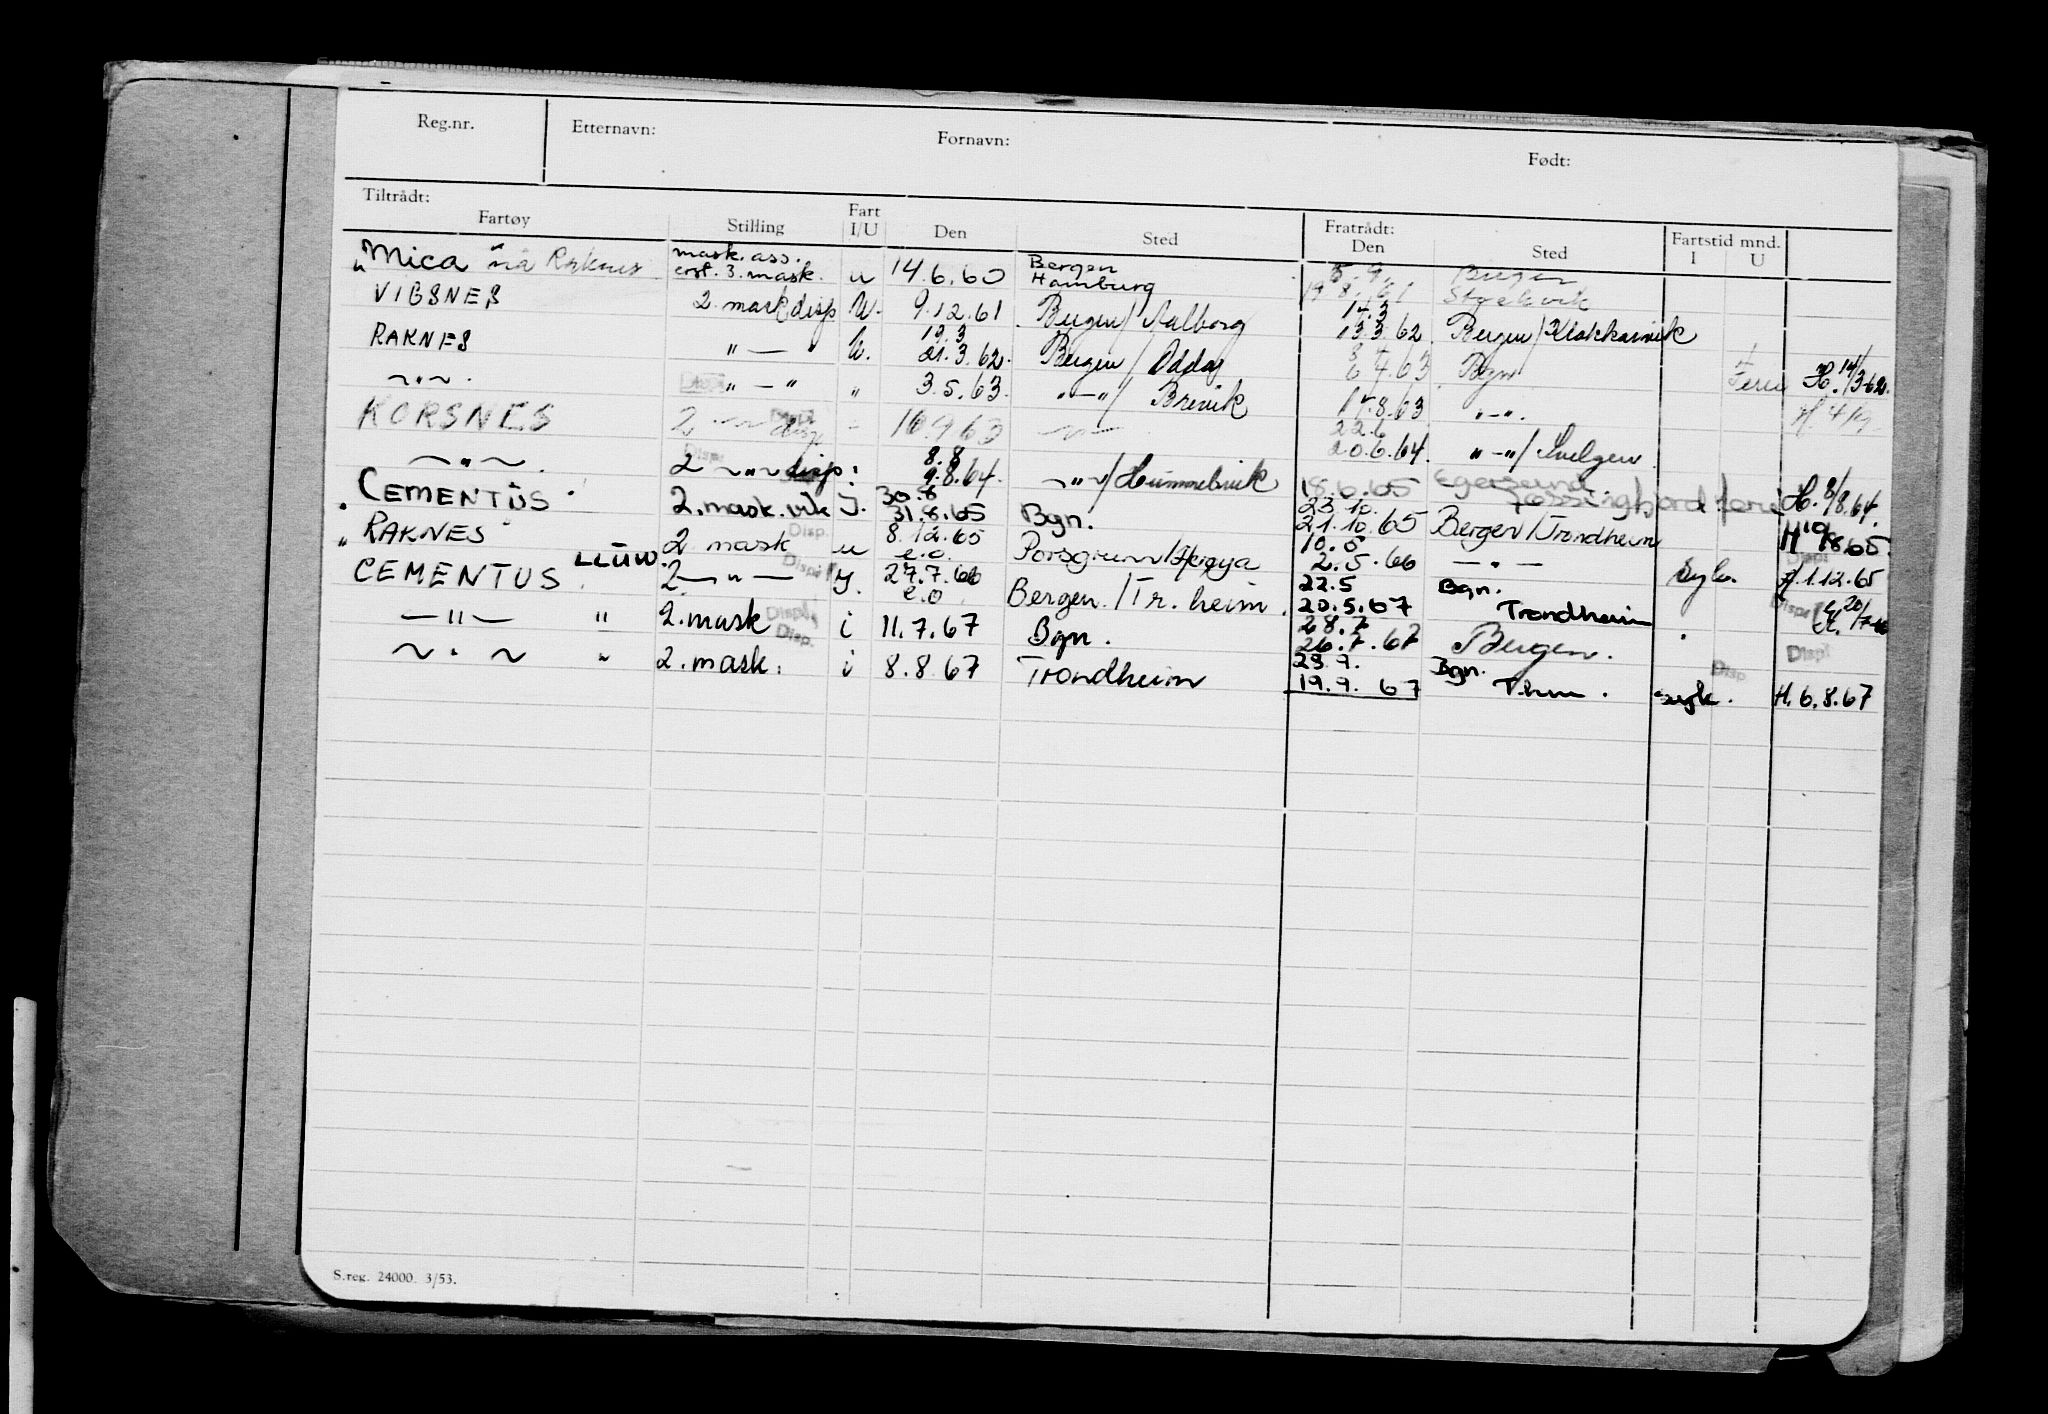 Reg.nr. Etternavn: Fornavn: Født:
Tiltrådt: Fratrådt:
Fartøy Stilling Fart I/U Den Sted Den Sted Fartstid mnd. I U
"Mica" nå Raknes mask. ass. erst. 3. mask. u 14.6.60 Bergen Hamburg 19.8.61 Bergen
VIBSNES 2. mask disp U. 9.12.61 Bergen/Aalborg 14.3 13.3.62 Bergen/
RAKNES " — " U. 19.3 21.3.62. Bergen/Odda 63 Bgn Ferie H. 14/3-62.
~"~. Disp. " — " " 3.5.63. "—"/Brevik 17.8.63 "—".
KORSNES 2 —"— disp 16.9.63 —"— 22.6 20.6.64. "—"/Svelgen
—"—. 2 ~"~ disp: 8.8 9.8.64. ~"~/Hummelvik 18.6.65 Egersund Jøssingfjord ferie H. 8/8.64.
"CEMENTUS" 2. mask. vik I. 30.8 31.8.65 Bgn. 23.10. 21.10.65 Bergen/Trondheim H 19/8.65.
"RAKNES" 2 mask Disp. u 8.12.65 e.o. Porsgrunn/Herøya 10.5 2.5.66 — " — Syk. H. 1.12.65
CEMENTUS LLUW. 2 — " — Disp! I. 27.7.66 e.o Bergen./Tr.heim. 22.5 20.5.67 Bgn. Trondheim Disp! H. 20/7-66
— " — " 2. mask Disp. i 11.7.67 Bgn. 28.7 26.7.67 Bergen. Disp!
~ " ~ " 2. mask. Disp. i 8.8.67 Trondheim 23.9. 19.9.67 Bgn. Thm. syk. Disp H. 6.8.67
S.reg. 24000. 3/53.